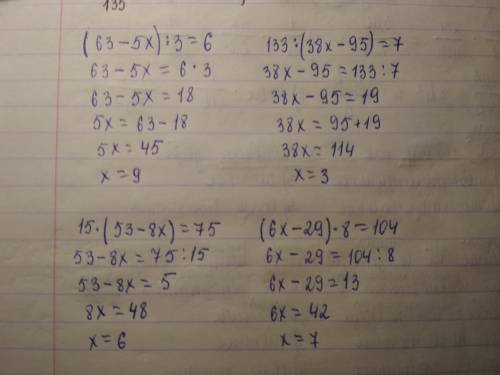 133
(63-5x):3=6
63-5x=6·3
63-5x=18
5x=63-18
5x=45
x=9
133:(38x-95)=7
38x-95=133:7
38x-95=19
38x=95+19
38x=114
x=3
15·(53-8x)=75
53-8x=75:15
53-8x=5
8x=48
x=6
(6x-29)·8=104
6x-29=104:8
6x-29=13
6x=42
x=7